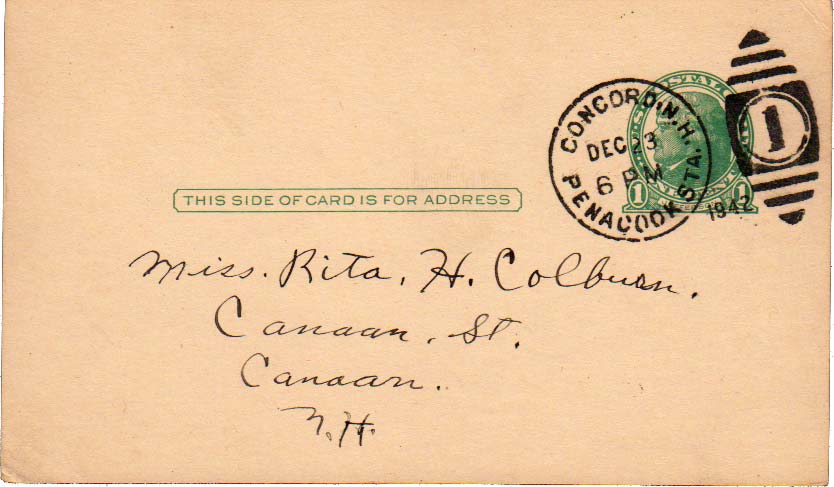 CONCORD, N.H.
DEC 23
6 PM
PENACOOK STA.
1942
1
U.S. POSTAL
1 CENT 1
THIS SIDE OF CARD IS FOR ADDRESS
Miss. Rita. H. Colburn.
Canaan. St.
Canaan.
N.H.